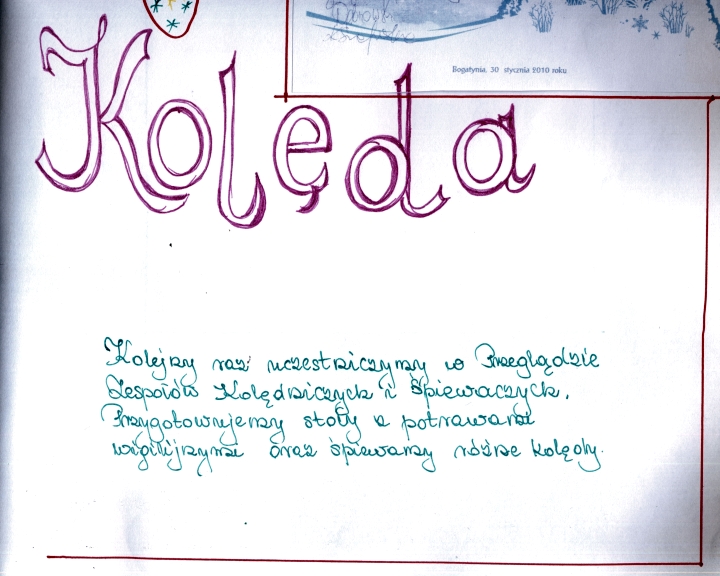 Bogatynia, 30 stycznia 2010 roku
Kolęda
Kolejny raz uczestniczymy w Przeglądzie
Zespołów Kolędniczych i Śpiewaczych.
Przygotowujemy stoły z potrawami
wigilijnymi oraz śpiewamy różne kolędy.